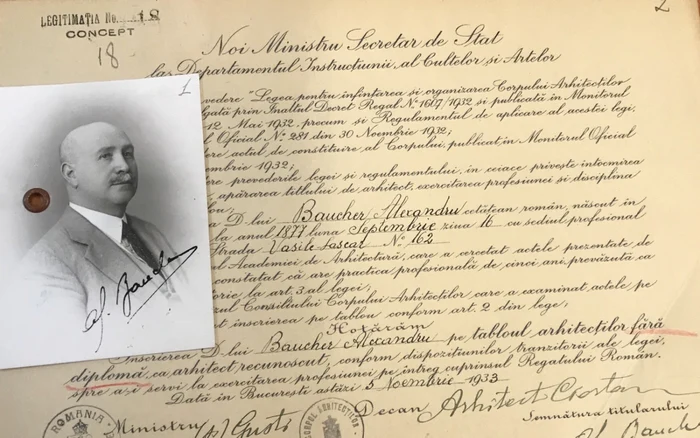 LEGITIMAȚIA No. 18
CONCEPT
18
2
1
Noi Ministru Secretar de Stat
la Departamentul Instrucțiunii, al Cultelor și Artelor
vedere "Legea pentru înființarea și organizarea Corpului Arhitecților
lgată prin Înaltul Decret Regal No. 1607/1932 și publicată în Monitorul
12 Mai 1932, precum și Regulamentul de aplicare al acestei legi,
l Oficial No. 281 din 30 Noembrie 1932;
ere actul de constituire, al Corpului, publicat în Monitorul Oficial
embrie 1932;
ere prevederile legei și regulamentului, în ceiace privește întocmirea
, apărarea titlului de arhitect, exercitarea profesiunei și disciplina
D-lui Baucher Alexandru cetățean român, născut în
la anul 1877 luna Septembrie ziua 16 cu sediul profesional
Strada Vasile Lascar No. 162
l Academiei de Arhitectură, care a cercetat actele prezentate de
constatat că are practica profesională de cinci ani, prevăzută ca
orie la art. 3 al legei;
zul Consiliului Corpului Arhitecților, care a examinat actele pe
t înscrierea pe tablou conform art. 2 din lege;
Hotărâm
Înscrierea D-lui Baucher Alexandru pe tabloul arhitecților fără
diplomă, ca arhitect recunoscut, conform dispozițiunilor tranzitorii ale legei,
spre a-i servi la exercitarea profesiunei pe întreg cuprinsul Regatului Român.
Dată în București astăzi 5 Noembrie 1933
Ministru
Decan
Arhitect
Semnătura titularului
ROMANIA